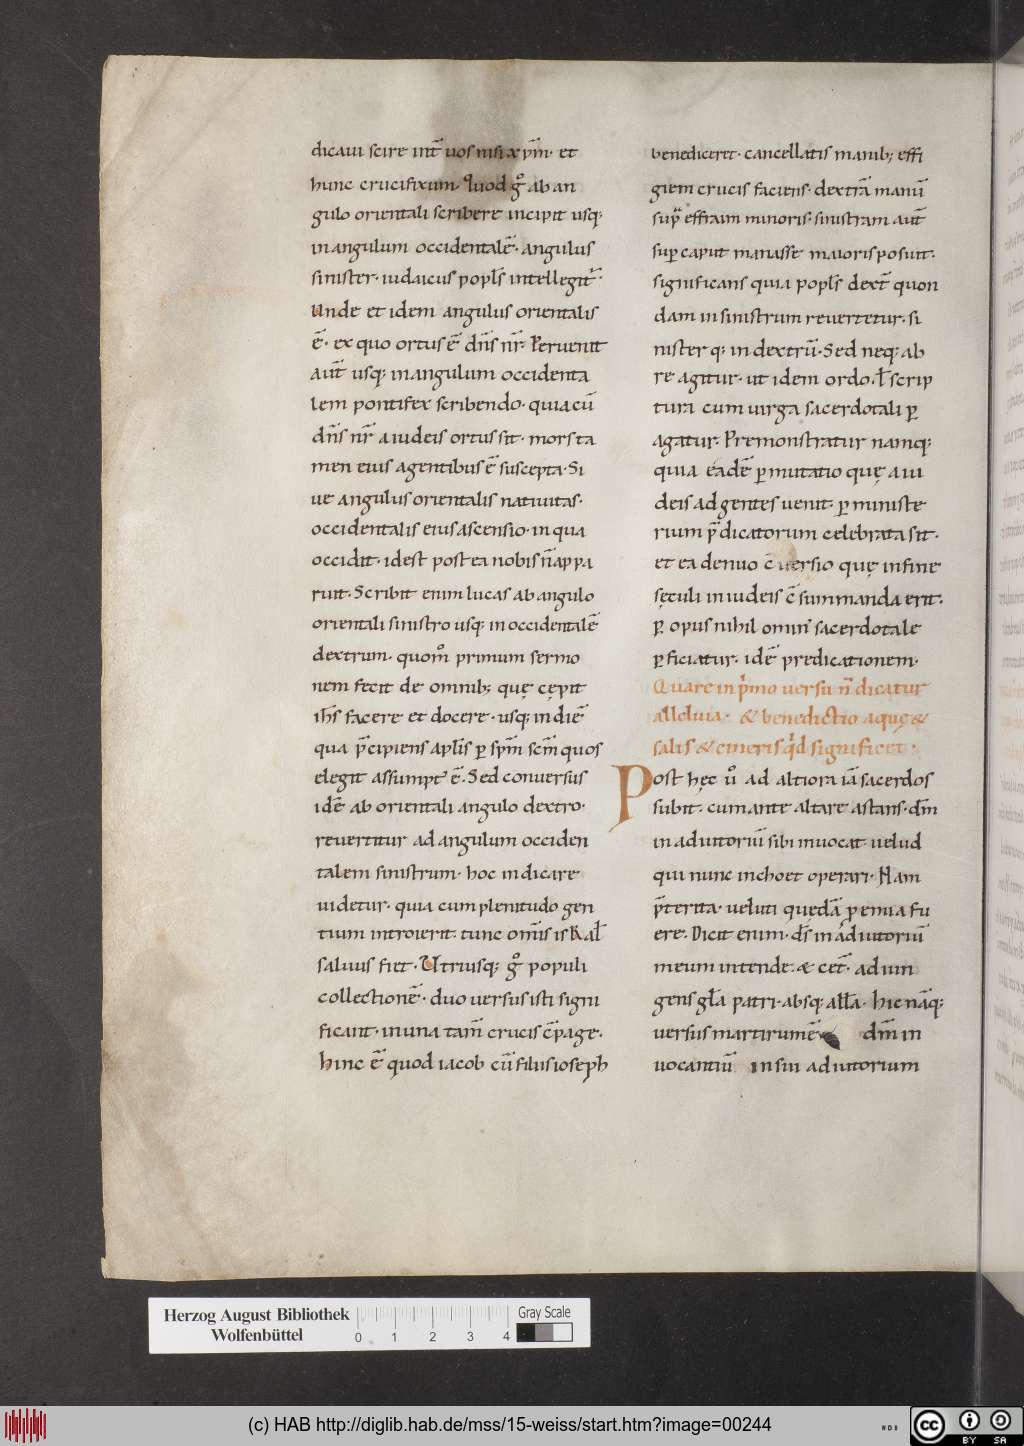 dicaui scire int̄ uos nisi xp̄m· et
hunc crucifixum· Quod gͦ ab an
gulo orientali scribere incipit usq;
in angulum occidentalē· angulus
sinister· iudaicus popl̄s intellegit᷑·
Unde et idem angulus orientalis
ē· ex quo ortus ē dn̄s nr̄· Peruenit
aut̄ usq; in angulum occidenta
lem pontifex scribendo· quia cū
dn̄s nr̄ a iudeis ortus sit· mors ta
men eius agentibus ē suscepta· Si
ue angulus orientalis natiuitas·
occidentalis eius ascensio· in qua
occidit· id est postea nobis n̄ appa
ruit· Scribit enim lucas ab angulo
orientali sinistro usq; in occidentalē
dextrum· quom̊ primum sermo
nem fecit de omnib; quę cępit
ih̄s facere et docere· usq; in diē
qua p̄cipiens apl̄is ꝑ sp̄m sc̄m quos
elegit assumpt᷑ ē· Sed conuersus
idē ab orientali angulo dextro·
reuertitur ad angulum occiden
talem sinistrum· hoc indicare
uidetur· quia cum plenitudo gen
tium introierit· tunc om̄is isRal̄
saluus fiet· Utriusq; gͦ populi
collectionē· duo uersus isti signi
ficant· in una tam̄ crucis c̄page·
hinc ē quod iacob cū filiis ioseph
benediceret· cancellatis manib; effi
giem crucis faciens· dextrā manū
sup̄ effraim minoris· sinistram aut̄
suꝑ caput manasse maioris posuit·
significans quia popl̄s dext̄ quon
dam in sinistrum reuertetur· si
nister q; in dextrū· Sed neq; ab
re agitur· ut idem ordo· l̄ scrip
tura cum uirga sacerdotali ꝑ
agatur· Premonstratur namq;
quia eadē ꝑmutatio quę a iu
deis ad gentes uenit· ꝑ ministe
rium p̄dicatorum celebrata sit·
et ea denuo c̄uersio quę in fine
sęculi in iudeis c̄summanda erit·
ꝑ opus nihil omin᷒ sacerdotale
ꝑficiatur· idē predicationem·
Quare in pͥmo uersu n̄ dicatur
alleluia· & benedictio aquę &
salis & cineris qͥd significet·
Post hęc u̅ͦ ad altiora iā sacerdos
subit· cum ante altare astans· dm̄
in adiutoriū sibi inuocat uelud
qui nunc inchoet operari· Nam
p̄terita· ueluti quedā pemia fu
ere· Dicit enim· ds̄ in adiutoriū
meum intende· & cet̄· adiun
gens gl̄a patri· absq; all̄a· hic nāq;
uersus martirum ē dm̄ in
uocantiū in sui adiutorium
Herzog August Bibliothek
Wolfenbüttel
0 1 2 3 4
Gray Scale
(c) HAB http://diglib.hab.de/mss/15-weiss/start.htm?image=00244
WDB
cc BY SA